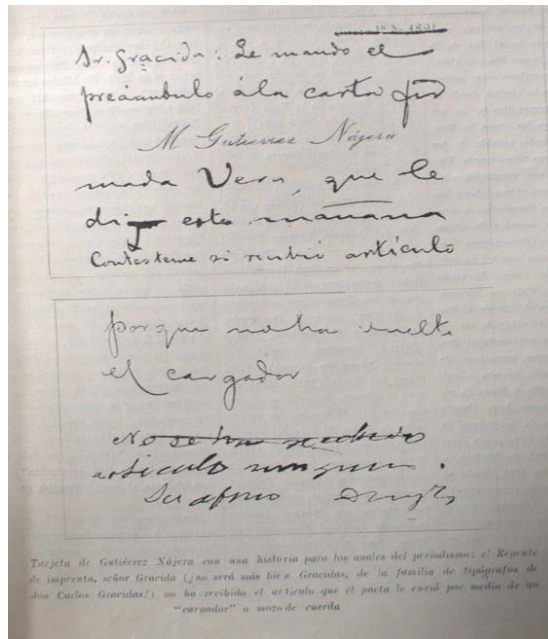 Sr. Gracida: Le mando el
preámbulo á la carta fir
M Gutierrez Nájera
mada Vera, que le
di esta mañana
Contesteme si recibió artículo
porque no ha vuelto
el cargador
No se ha recibido
artículo ninguno.
Serafino
Tarjeta de Gutiérrez Nájera con una historia para los anales del periodismo: el Regente
de imprenta, señor Gracida (¿no será más bien Gracidas, de la familia de tipógrafos de
don Carlos Gracidas?) no ha recibida el artículo que el poeta le envió por medio de un
"cargador" o mozo de cuerda